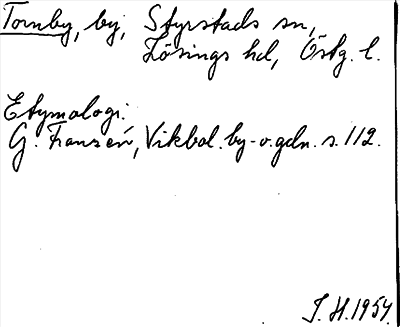 Tornby, by, Styrstads sn,
Lösings hd, Östg. l.
Etymologi.
G. Franzén, Vikbol. by- o. gdn. s. 112.
J. H. 1954.